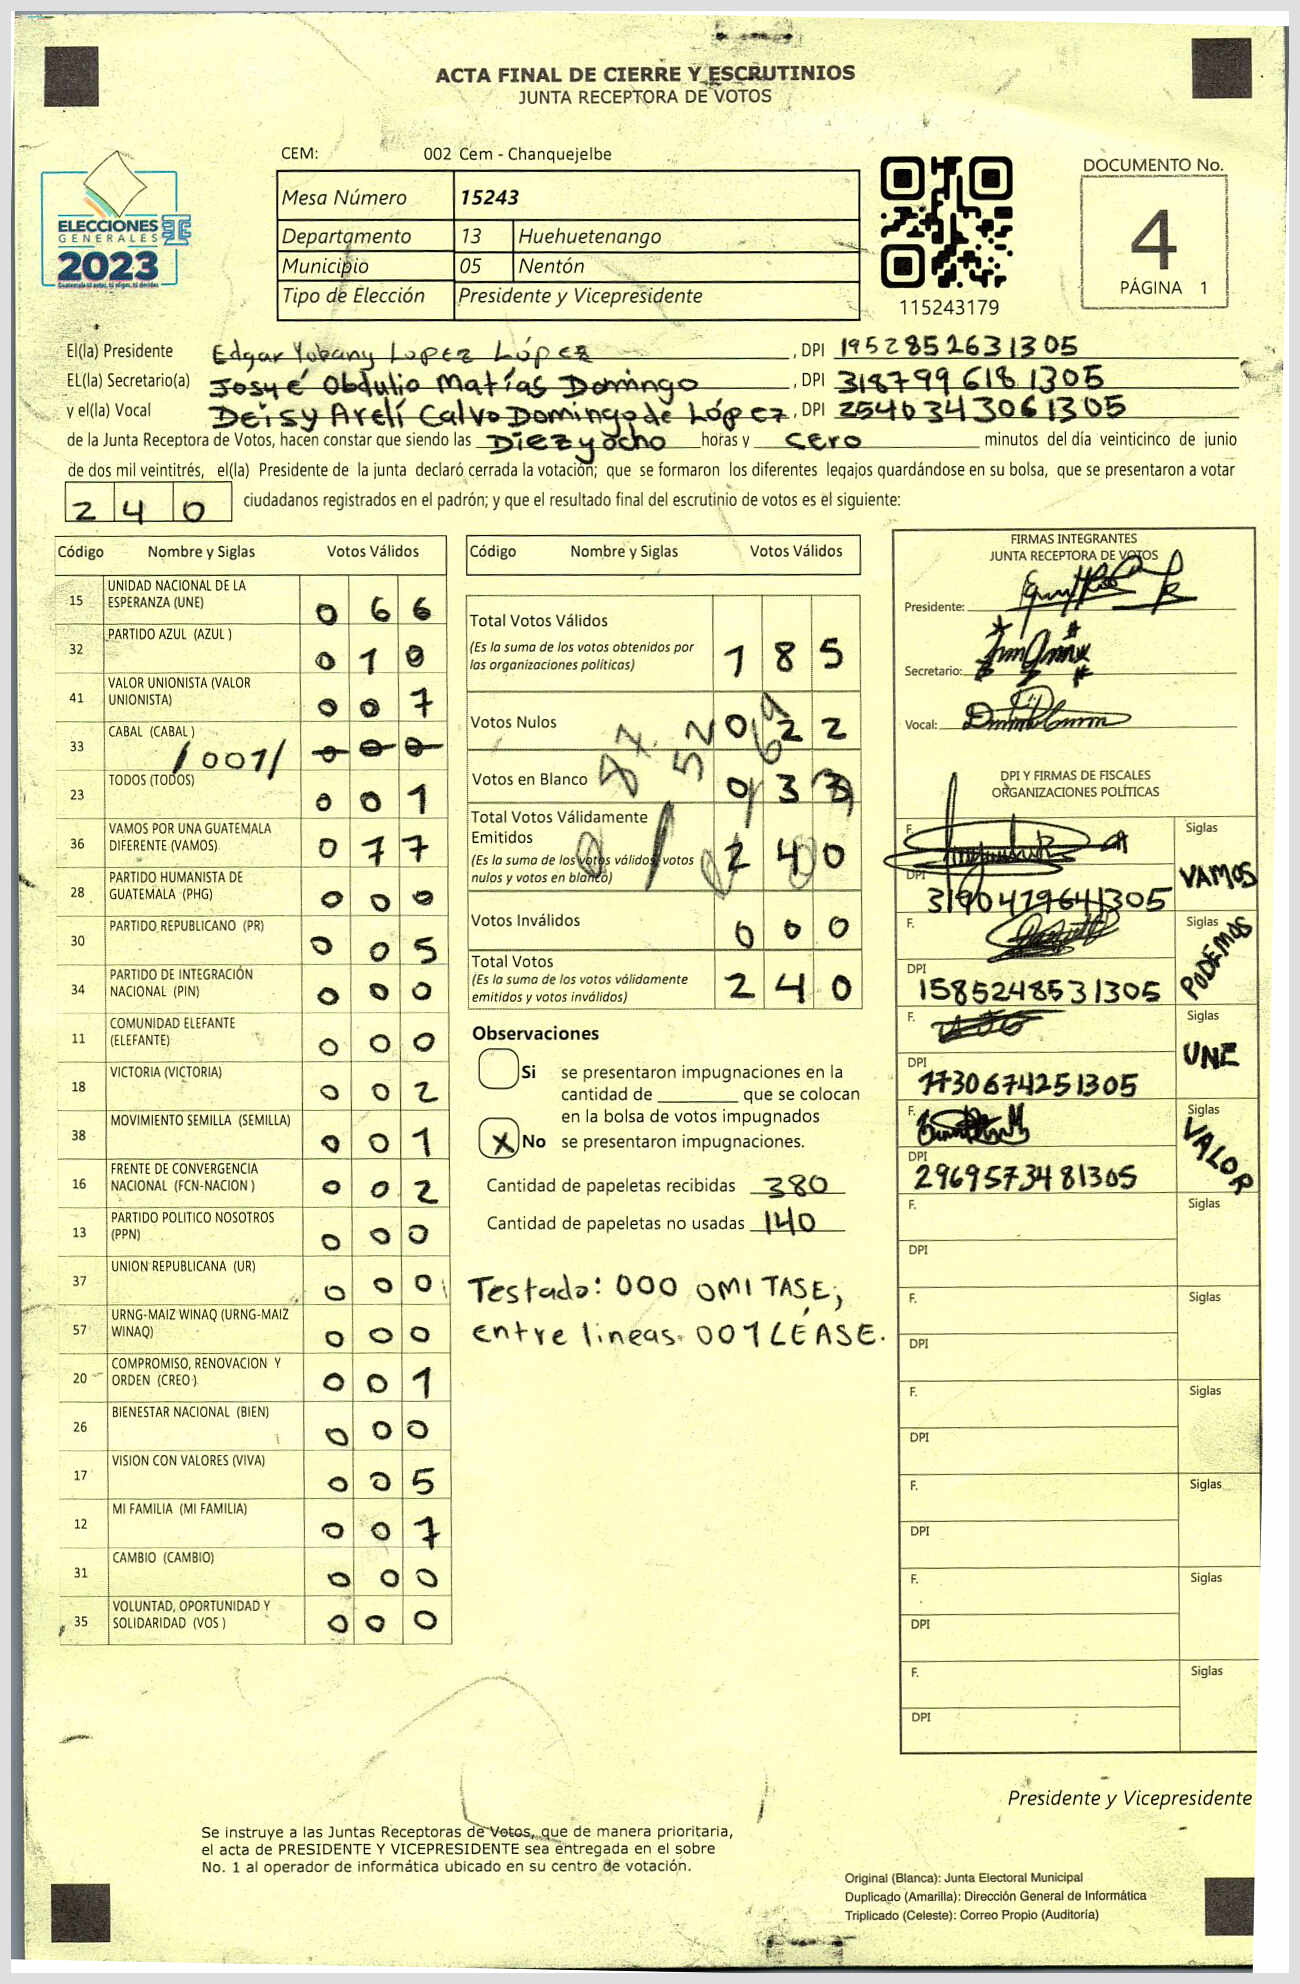 ACTA FINAL DE CIERRE Y ESCRUTINIOS
JUNTA RECEPTORA DE VOTOS
CEM: 002 Cem - Chanquejelbe
Mesa Número 15243
Departamento 13 Huehuetenango
Municipio 05 Nentón
Tipo de Elección Presidente y Vicepresidente
ELECCIONES
GENERALES
2023
115243179
DOCUMENTO No.
4
PÁGINA 1
El(la) Presidente Edgar Yobany Lopez López, DPI 1952852631305
EL(la) Secretario(a) Josué Obdulio Matías Domingo, DPI 3187996181305
y el(la) Vocal Deisy Arelí Calvo Domingo de López, DPI 2540343061305
de la Junta Receptora de Votos, hacen constar que siendo las Diez y ocho horas y cero minutos del día veinticinco de junio
de dos mil veintitrés, el(la) Presidente de la junta declaró cerrada la votación; que se formaron los diferentes legajos quardándose en su bolsa, que se presentaron a votar
240 ciudadanos registrados en el padrón; y que el resultado final del escrutinio de votos es el siguiente:
Código Nombre y Siglas Votos Válidos
15 UNIDAD NACIONAL DE LA ESPERANZA (UNE) 066
32 PARTIDO AZUL (AZUL ) 010
41 VALOR UNIONISTA (VALOR UNIONISTA) 007
33 CABAL (CABAL ) /001/ 000
23 TODOS (TODOS) 001
36 VAMOS POR UNA GUATEMALA DIFERENTE (VAMOS) 077
28 PARTIDO HUMANISTA DE GUATEMALA (PHG) 000
30 PARTIDO REPUBLICANO (PR) 005
34 PARTIDO DE INTEGRACIÓN NACIONAL (PIN) 000
11 COMUNIDAD ELEFANTE (ELEFANTE) 000
18 VICTORIA (VICTORIA) 002
38 MOVIMIENTO SEMILLA (SEMILLA) 001
16 FRENTE DE CONVERGENCIA NACIONAL (FCN-NACION ) 002
13 PARTIDO POLITICO NOSOTROS (PPN) 000
37 UNION REPUBLICANA (UR) 000
57 URNG-MAIZ WINAQ (URNG-MAIZ WINAQ) 000
20 COMPROMISO, RENOVACION Y ORDEN (CREO ) 001
26 BIENESTAR NACIONAL (BIEN) 000
17 VISION CON VALORES (VIVA) 005
12 MI FAMILIA (MI FAMILIA) 007
31 CAMBIO (CAMBIO) 000
35 VOLUNTAD, OPORTUNIDAD Y SOLIDARIDAD (VOS ) 000
Código Nombre y Siglas Votos Válidos
Total Votos Válidos 185
(Es la suma de los votos obtenidos por
las organizaciones políticas)
Votos Nulos 022
Votos en Blanco 033
Total Votos Válidamente
Emitidos 240
(Es la suma de los votos válidos, votos
nulos y votos en blanco)
Votos Inválidos 000
Total Votos 240
(Es la suma de los votos válidamente
emitidos y votos inválidos)
87 52 69
Observaciones
Si se presentaron impugnaciones en la
cantidad de ________ que se colocan
en la bolsa de votos impugnados
X No se presentaron impugnaciones.
Cantidad de papeletas recibidas 380
Cantidad de papeletas no usadas 140
Testado: 000 OMITASE;
entre lineas. 001 LÉASE.
FIRMAS INTEGRANTES
JUNTA RECEPTORA DE VOTOS
Presidente:
Secretario:
Vocal:
DPI Y FIRMAS DE FISCALES
ORGANIZACIONES POLÍTICAS
F. Siglas VAMOS
DPI 3190479641305
F. Siglas PODEMOS
DPI 1585248531305
F. Siglas UNE
DPI 1730674251305
F. Siglas VALOR
DPI 2969573481305
F. Siglas
DPI
F. Siglas
DPI
F. Siglas
DPI
F. Siglas
DPI
F. Siglas
DPI
F. Siglas
DPI
Presidente y Vicepresidente
Se instruye a las Juntas Receptoras de Votos, que de manera prioritaria,
el acta de PRESIDENTE Y VICEPRESIDENTE sea entregada en el sobre
No. 1 al operador de informática ubicado en su centro de votación.
Original (Blanca): Junta Electoral Municipal
Duplicado (Amarilla): Dirección General de Informática
Triplicado (Celeste): Correo Propio (Auditoría)